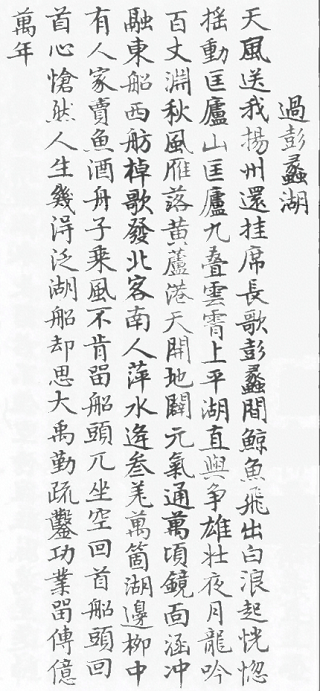 過彭蠡湖
天風送我揚州還挂席長歌彭蠡間鯨魚飛出白浪起恍惚
揺動匡廬山匡廬九疊雲霄上平湖直與争雄壮夜月龍吟
百丈淵秋風雁落黄蘆港天開地闢元氣通萬頃鏡面涵冲
融東船西舫棹歌發北客南人萍水逢叁差萬箇湖邊柳中
有人家賣魚酒舟子乗風不肯畱船頭兀坐空回首船頭回
首心愴然人生幾淂泛湖船却思大禹勤疏鑿功業畱傳億
萬年